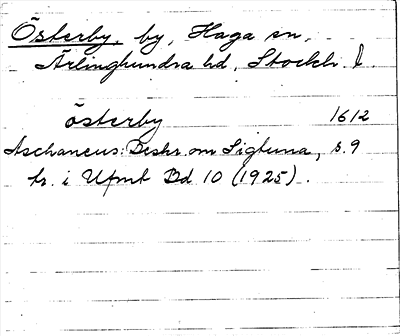 Österby, by, Haga sn,
Ärlinghundra hd, Stockh. l.
österby 1612
Aschaneus: Beskr. om Sigtuna, s. 9
tr. i Ufmt Bd 10 (1925).